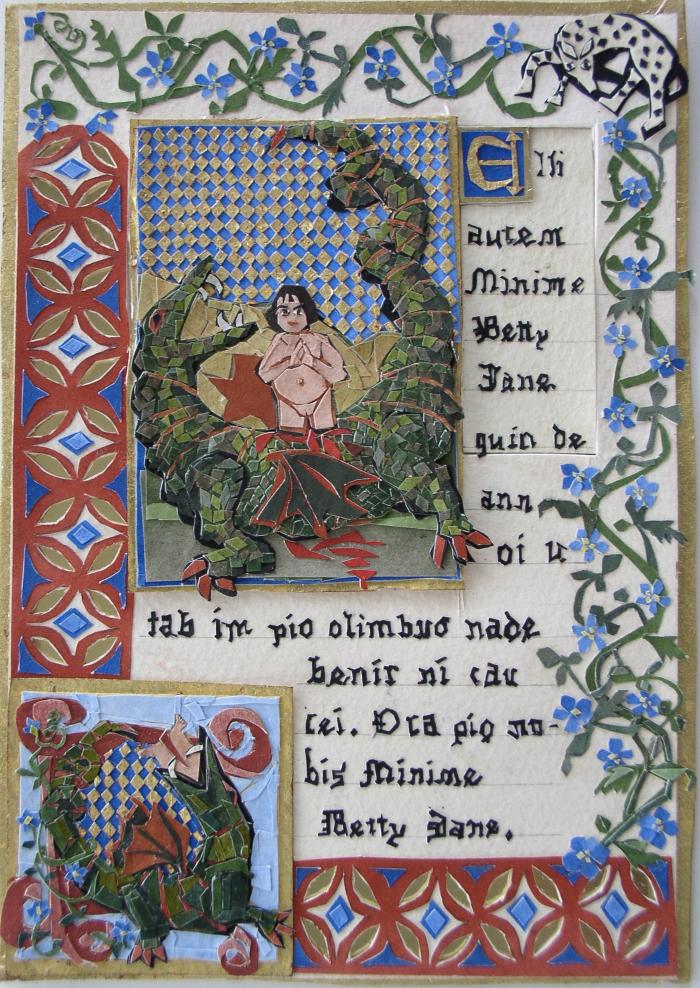 Elli
autem
Minime
Betty
Jane
quin de
ann
oi u
tab im pio olimbus nade
benir ni cau
cei. Ora pio no-
bis Minime
Betty Jane.